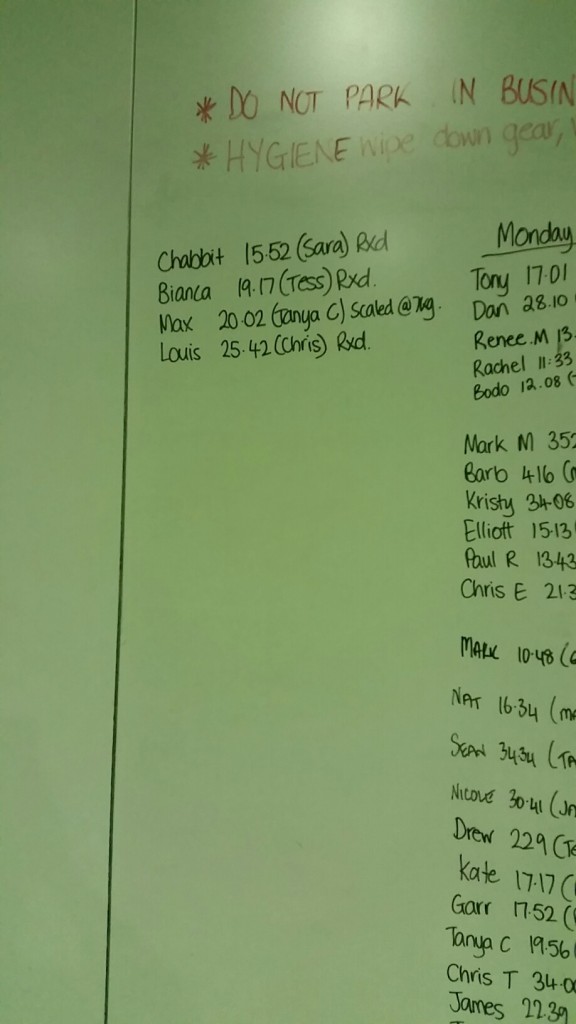 * DO NOT PARK IN BUSIN
* HYGIENE wipe down gear,
Chabbit 15.52 (Sara) Rxd
Bianca 19.17 (Tess) Rxd.
Max 20.02 (Tanya C) Scaled @7kg.
Louis 25.42 (Chris) Rxd.
Monday
Tony 17.01
Dan 28.10
Renee.M 13.
Rachel 11:33
Bodo 12.08 (
Mark M 352
Barb 416 (
Kristy 34.08
Elliott 15.13
Paul R 13.43
Chris E 21.3
MARK 10.48 (
NAT 16.34 (
SEAN 34.34 (TA
NICOLE 30.41 (
Drew 229 (Te
Kate 17.17 (
Garr 17.52 (
Tanya C 19.56
Chris T 34.0
James 22.39